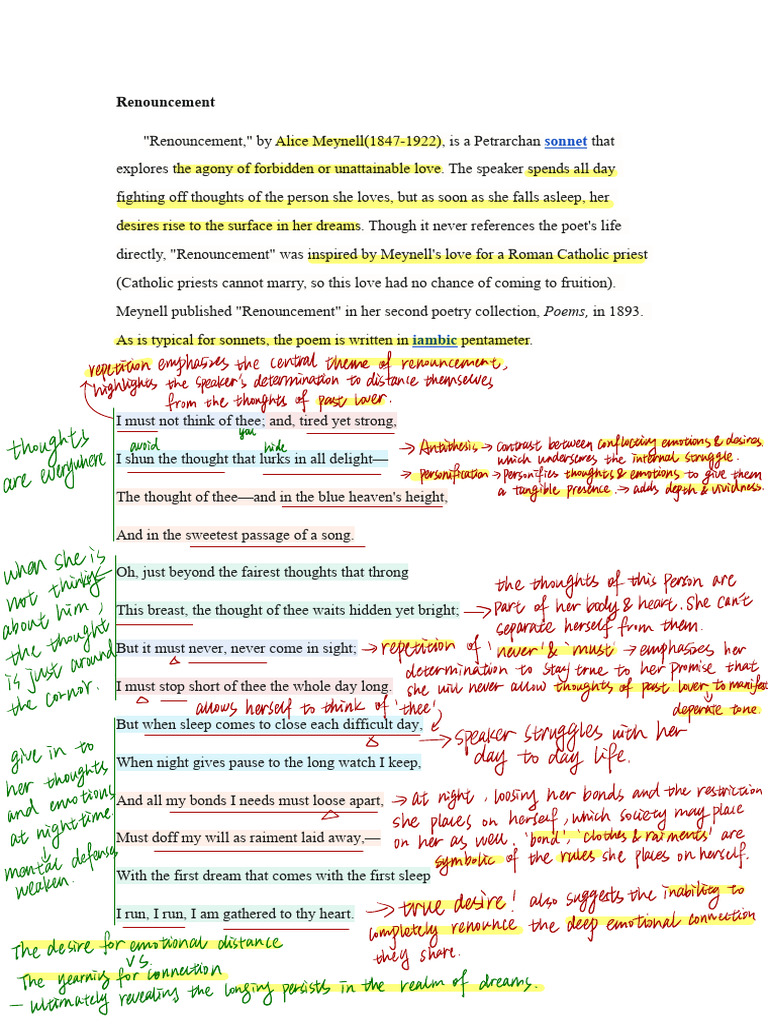 Renouncement
"Renouncement," by Alice Meynell(1847-1922), is a Petrarchan sonnet that
explores the agony of forbidden or unattainable love. The speaker spends all day
fighting off thoughts of the person she loves, but as soon as she falls asleep, her
desires rise to the surface in her dreams. Though it never references the poet's life
directly, "Renouncement" was inspired by Meynell's love for a Roman Catholic priest
(Catholic priests cannot marry, so this love had no chance of coming to fruition).
Meynell published "Renouncement" in her second poetry collection, Poems, in 1893.
As is typical for sonnets, the poem is written in iambic pentameter.
repetition emphasizes the central theme of renouncement,
highlights the speaker's determination to distance themselves
from the thoughts of past lover.
I must not think of thee; and, tired yet strong,
avoid
you
hide
I shun the thought that lurks in all delight—
The thought of thee—and in the blue heaven's height,
And in the sweetest passage of a song.
thoughts
are everywhere
→ Antithesis → contrast between conflicting emotions & desires,
which underscores the internal struggle.
→ personification → Personifies thoughts & emotions to give them
a tangible presence. → adds depth & vividness.
Oh, just beyond the fairest thoughts that throng
This breast, the thought of thee waits hidden yet bright;
But it must never, never come in sight;
I must stop short of thee the whole day long.
when she is
not thinking
about him,
the thought
is just around
the cornor.
→ the thoughts of this person are
part of her body & heart. She can't
separate herself from them.
→ repetition of 'never' & 'must' → emphasizes her
determination to stay true to her promise that
she will never allow thoughts of past lover to manifest
↓
deperate tone.
allows herself to think of 'thee'
But when sleep comes to close each difficult day,
When night gives pause to the long watch I keep,
And all my bonds I needs must loose apart,
Must doff my will as raiment laid away,—
With the first dream that comes with the first sleep
I run, I run, I am gathered to thy heart.
give in to
her thoughts
and emotions
at nighttime.
↓
mental defenses
weaken.
→ speaker struggles with her
day to day life.
→ at night, loosing her bonds and the restriction
she places on herself, which society may place
on her as well. 'bond', 'clothes & raiments' are
symbolic of the rules she places on herself.
→ true desire! also suggests the inability to
completely renounce the deep emotional connection
they share.
The desire for emotional distance
VS.
The yearning for connection
— ultimately revealing the longing persists in the realm of dreams.